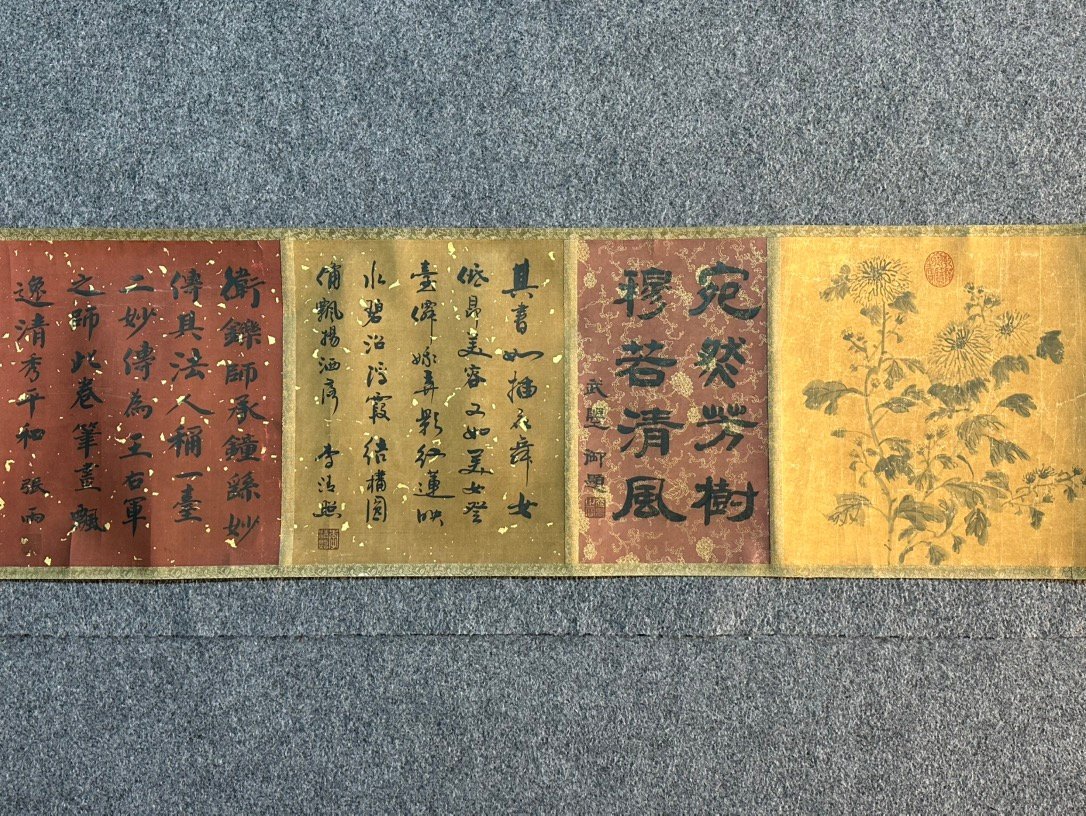 宛然芳樹
穆若清風
武曌 御題
其書如插花舞女
低昂美容又如美女登
臺僊娥弄影紅蓮映
水碧沼浮霞結構圓
備飄揚洒落 李清照
衛鑠師承鐘繇妙
傳其法人稱一臺
二妙傳為王右軍
之師此卷筆畫飄
逸清秀平和 張雨